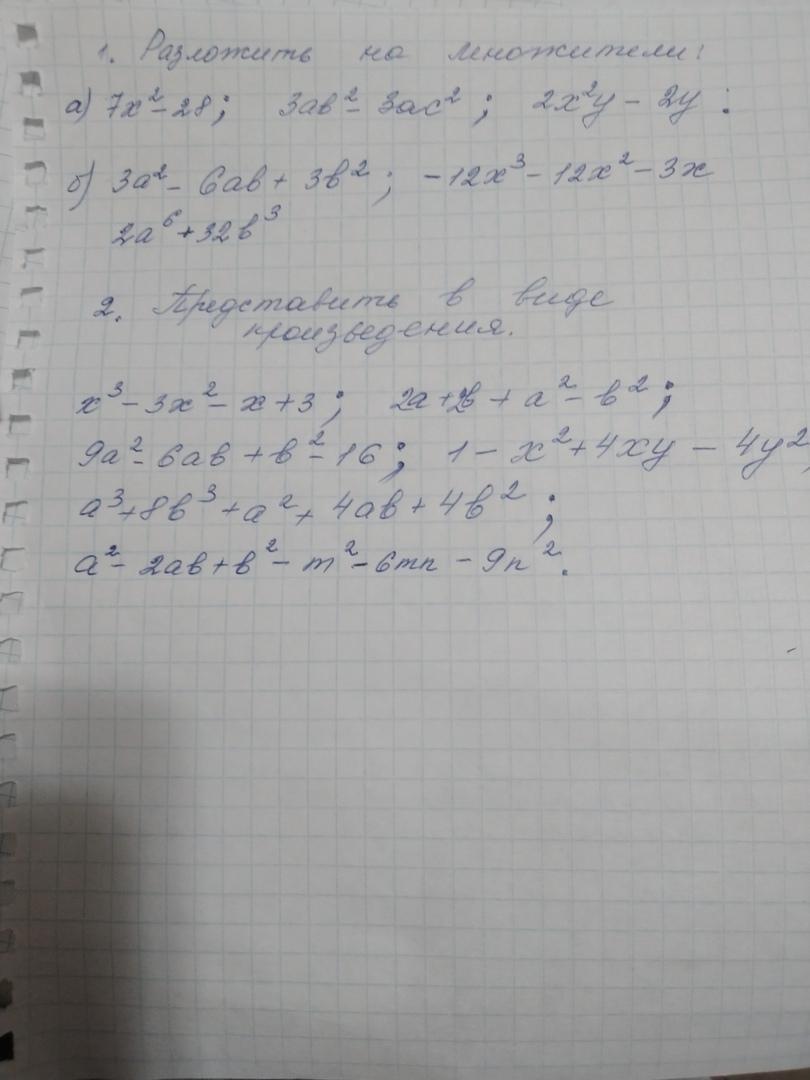 1. Разложить на множители:
а) 7x² - 28; 3ab² - 3ac²; 2x²y - 2y:
б) 3a² - 6ab + 3b²; -12x³ - 12x² - 3x
2a⁶ + 32b³
2. Представить в виде
произведения.
x³ - 3x² - x + 3; 2a + 2b + a² - b²;
9a² - 6ab + b² - 16; 1 - x² + 4xy - 4y²,
a³ + 8b³ + a² + 4ab + 4b²;
a² - 2ab + b² - m² - 6mn - 9n².